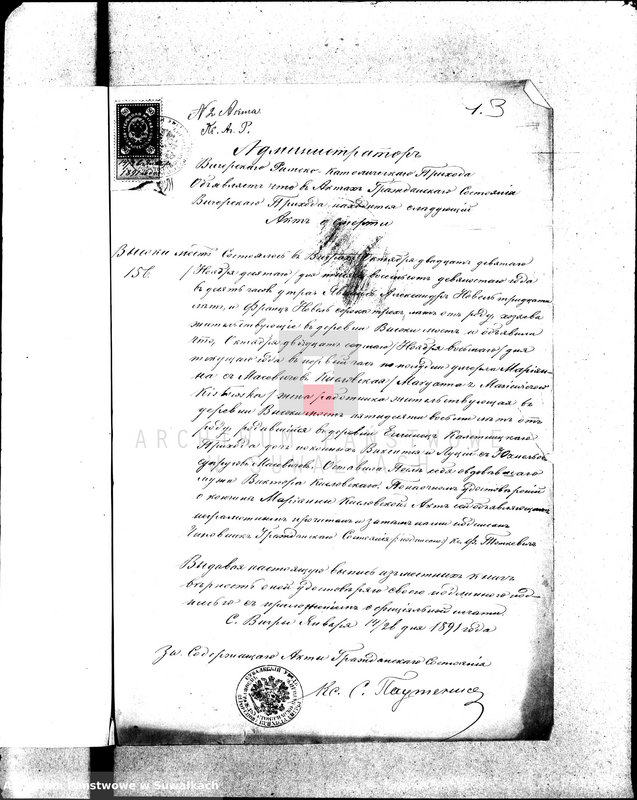 № 2 Акта
Кс. Ап. Р.
1. 3
Администраторъ
Вигерскаго Римско-Католическаго Прихода
Объявляетъ что въ Актахъ Гражданскаго Состоянія
Вигерскаго Прихода находится следующій
Актъ о смерти
Высокимостъ
156
Состоялось въ Виграхъ Октября двадцать девятаго
/Ноября десятаго/ дня тысяча восемьсотъ девяностаго года
въ десять часовъ утра Явились Александръ Новель тридцати
летъ, и Францъ Новель сорока трехъ летъ отъ роду, хозяева
жительствующіе въ деревни Высокимостъ и объявили
что, Октября двадцать седьмаго /Ноября восьмаго/ дня
текущаго года въ первый часъ по полудни умерла Маріян-
на съ Масевичовъ Кисловская
жена работника жительствующая въ
деревни Высокимостъ пятидесяти восьми летъ отъ
роду, родившаяся въ деревни
Прихода дочь покойныхъ Викентія и Луціи съ
супруговъ Масевичовъ. Оставила после себя овдовевшаго
мужа Виктора Кисловскаго. По настоящемъ удостовереніи
о кончине Маріянны Кисловской Актъ сей объявляющимъ
неграмотнымъ прочитанъ и затемъ нами подписанъ
Чиновникъ Гражданскаго Состоянія (подписано) Кс. Ф. Тонкевичъ
Выдавая настоящую выпись изъ местныхъ книгъ
верность оной удостоверяю своею подлинною под-
писью съ приложеніемъ оффиціальной печати.
С. Вигры Января 14/26 дня 1891 года
За Содержащаго Акты Гражданскаго Состоянія
Кс. С.
ARCHIWUM PAŃSTWOWE
W SUWAŁKACH
Archiwum Państwowe w Suwałkach